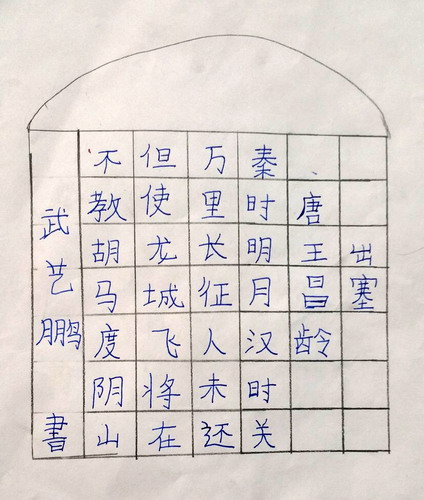 出塞
唐王昌龄
秦时明月汉时关
万里长征人未还
但使龙城飞将在
不教胡马度阴山
武艺鹏書